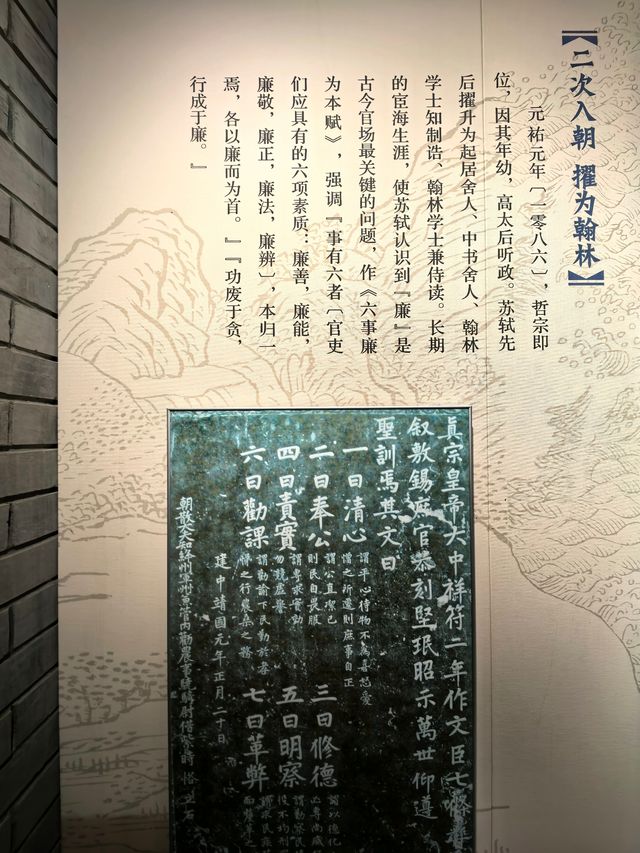 【二次入朝 擢为翰林】
元祐元年〔一零八六〕，哲宗即
位，因其年幼，高太后听政。苏轼先
后擢升为起居舍人、中书舍人、翰林
学士知制诰、翰林学士兼侍读。长期
的宦海生涯，使苏轼认识到『廉』是
古今官场最关键的问题，作《六事廉
为本赋》，强调『事有六者〔官吏
们应具有的六项素质：廉善，廉能，
廉敬，廉正，廉法，廉辨〕，本归一
焉，各以廉而为首。』『功废于贪，
行成于廉。』
真宗皇帝大中祥符二年作文臣七條
叙敷錫庶官恭刻堅珉昭示萬世仰遵
聖訓焉其文曰
一曰清心
謂平心待物不爲喜怒愛
憎之所遷則庶事自正
二曰奉公
謂公直潔己
則民自畏服
三曰修德
謂以德化
四曰責實
謂專求實効
勿競虛譽
五曰明察
謂勤察民
六曰勸課
謂勸諭下民勤於孝
悌之行農桑之務
七曰革弊
建中靖國元年正月二十日